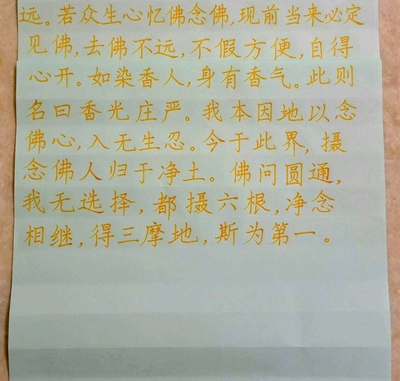 远。若众生心忆佛念佛,现前当来必定
见佛,去佛不远,不假方便,自得
心开。如染香人,身有香气。此则
名曰香光庄严。我本因地以念
佛心,入无生忍。今于此界,摄
念佛人归于净土。佛问圆通,
我无选择,都摄六根,净念
相继,得三摩地,斯为第一。